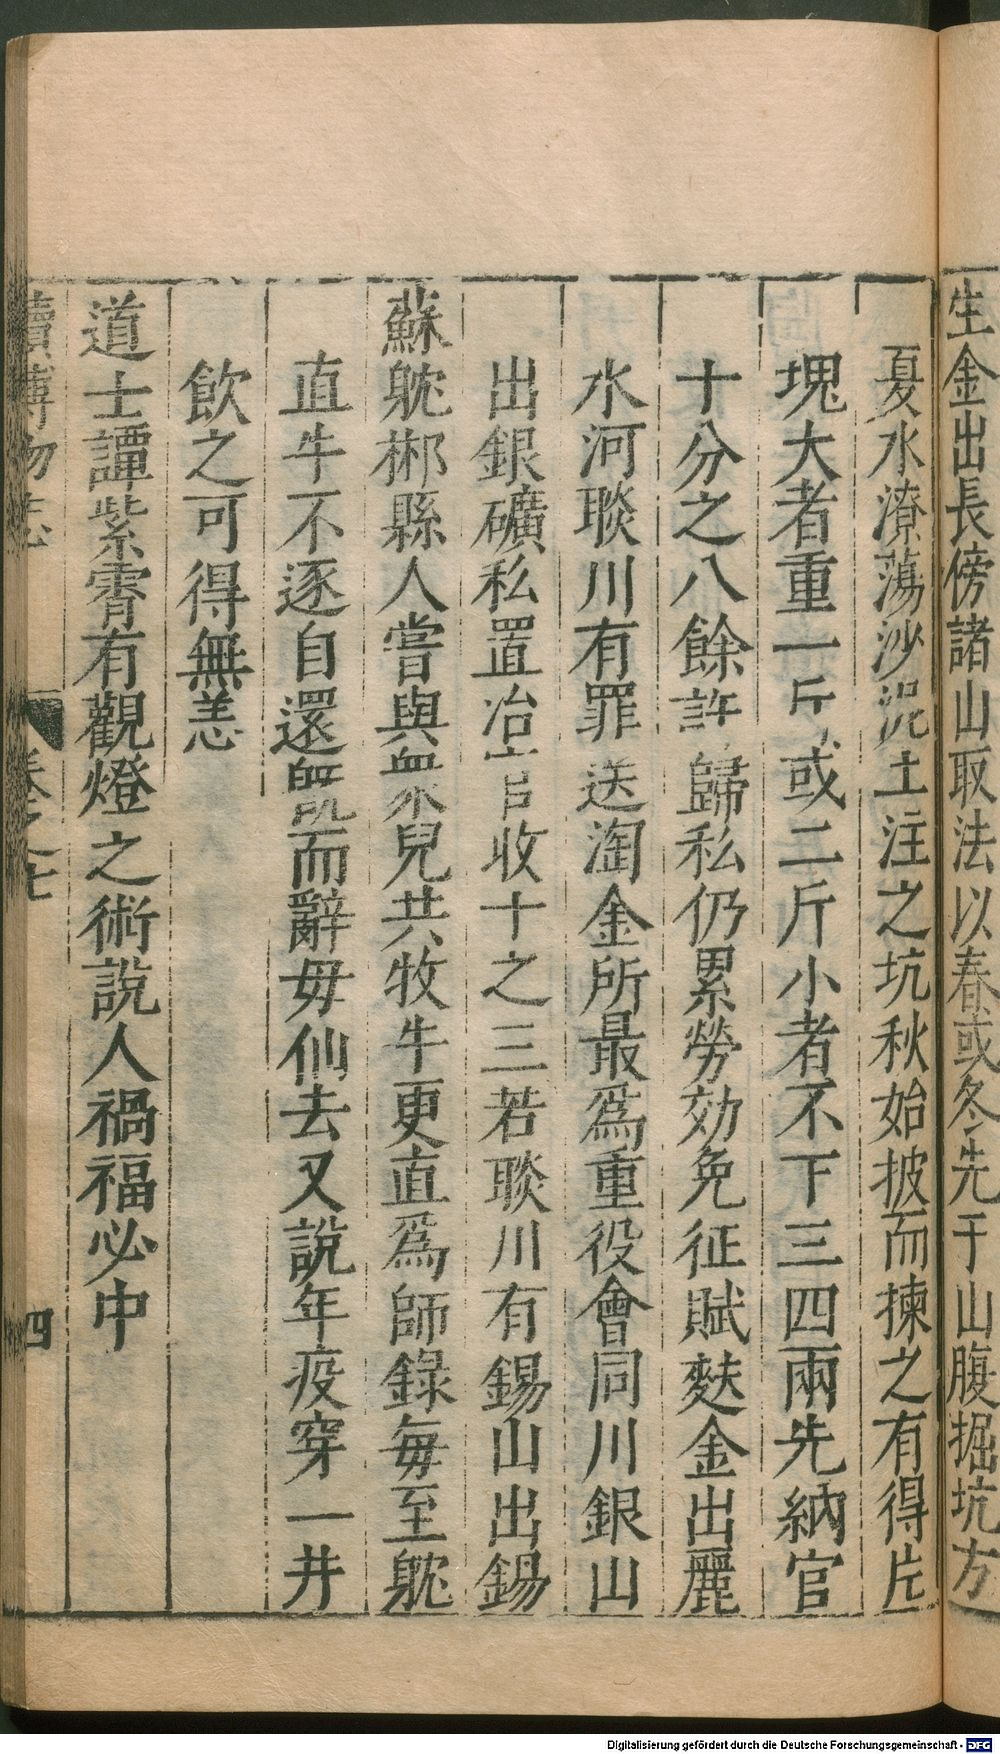 生金出長傍諸山取法以春或冬先于山腹掘坑方
夏水潦蕩沙泥土注之坑秋始披而揀之有得片
塊大者重一斤或二斤小者不下三四兩先納官
十分之八餘許歸私仍累勞効免征賦麩金出麗
水河賧川有罪送淘金所最爲重役會同川銀山
出銀礦私置冶官收十之三若賧川有錫山出錫
蘇躭郴縣人嘗與衆兒共牧牛更直爲師錄每至躭
直牛不逐自還 而辭母仙去又説年疫穿一井
飲之可得無恙
道士譚紫霄有觀燈之術説人禍福必中
續博物志 卷之七 四
Digitalisierung gefördert durch die Deutsche Forschungsgemeinschaft - DFG